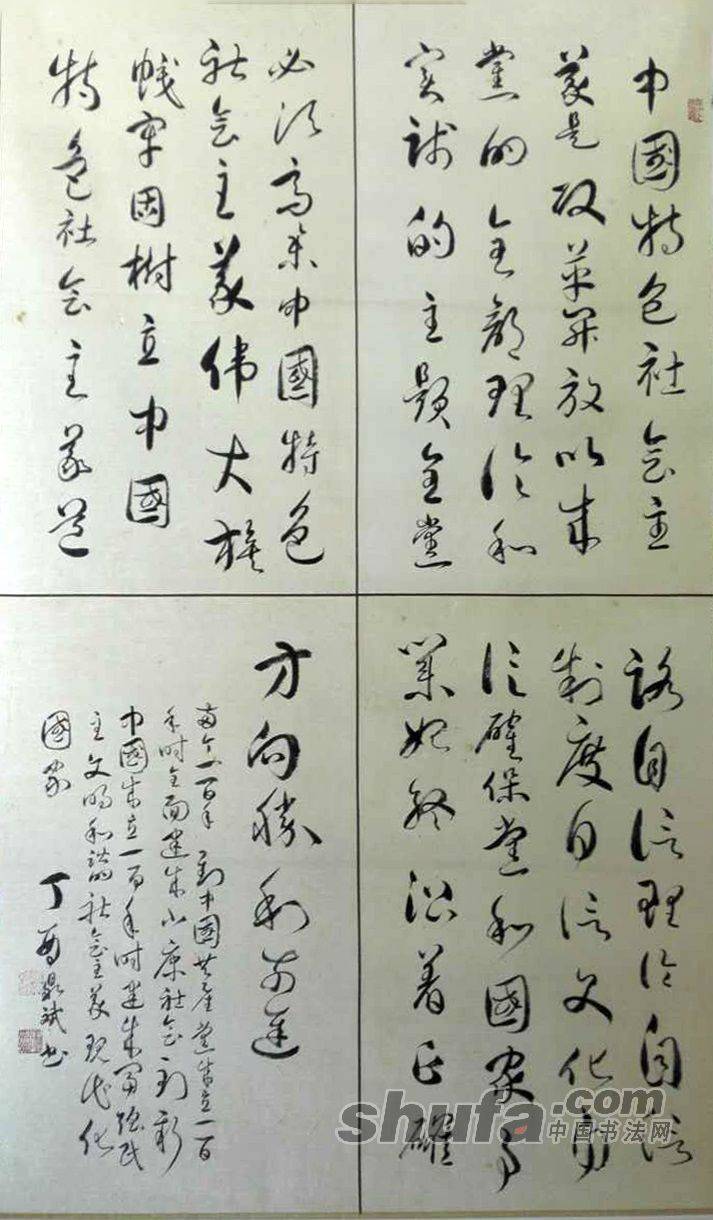 中國特色社会主
義是改革开放以来
党的全部理论和
实践的主题全党
必须高举中國特色
社会主義伟大旗
帜牢固树立中國
特色社会主義道
路自信理论自信
制度自信文化自
信確保党和國家事
業始终沿着正確
方向勝利前進
两个一百年 到中國共产党成立一百
年时全面建成小康社会到新
中國成立一百年时建成富强民
主文明和谐的社会主義现代化
國家
丁酉 斌书
shufa.com
中国书法网